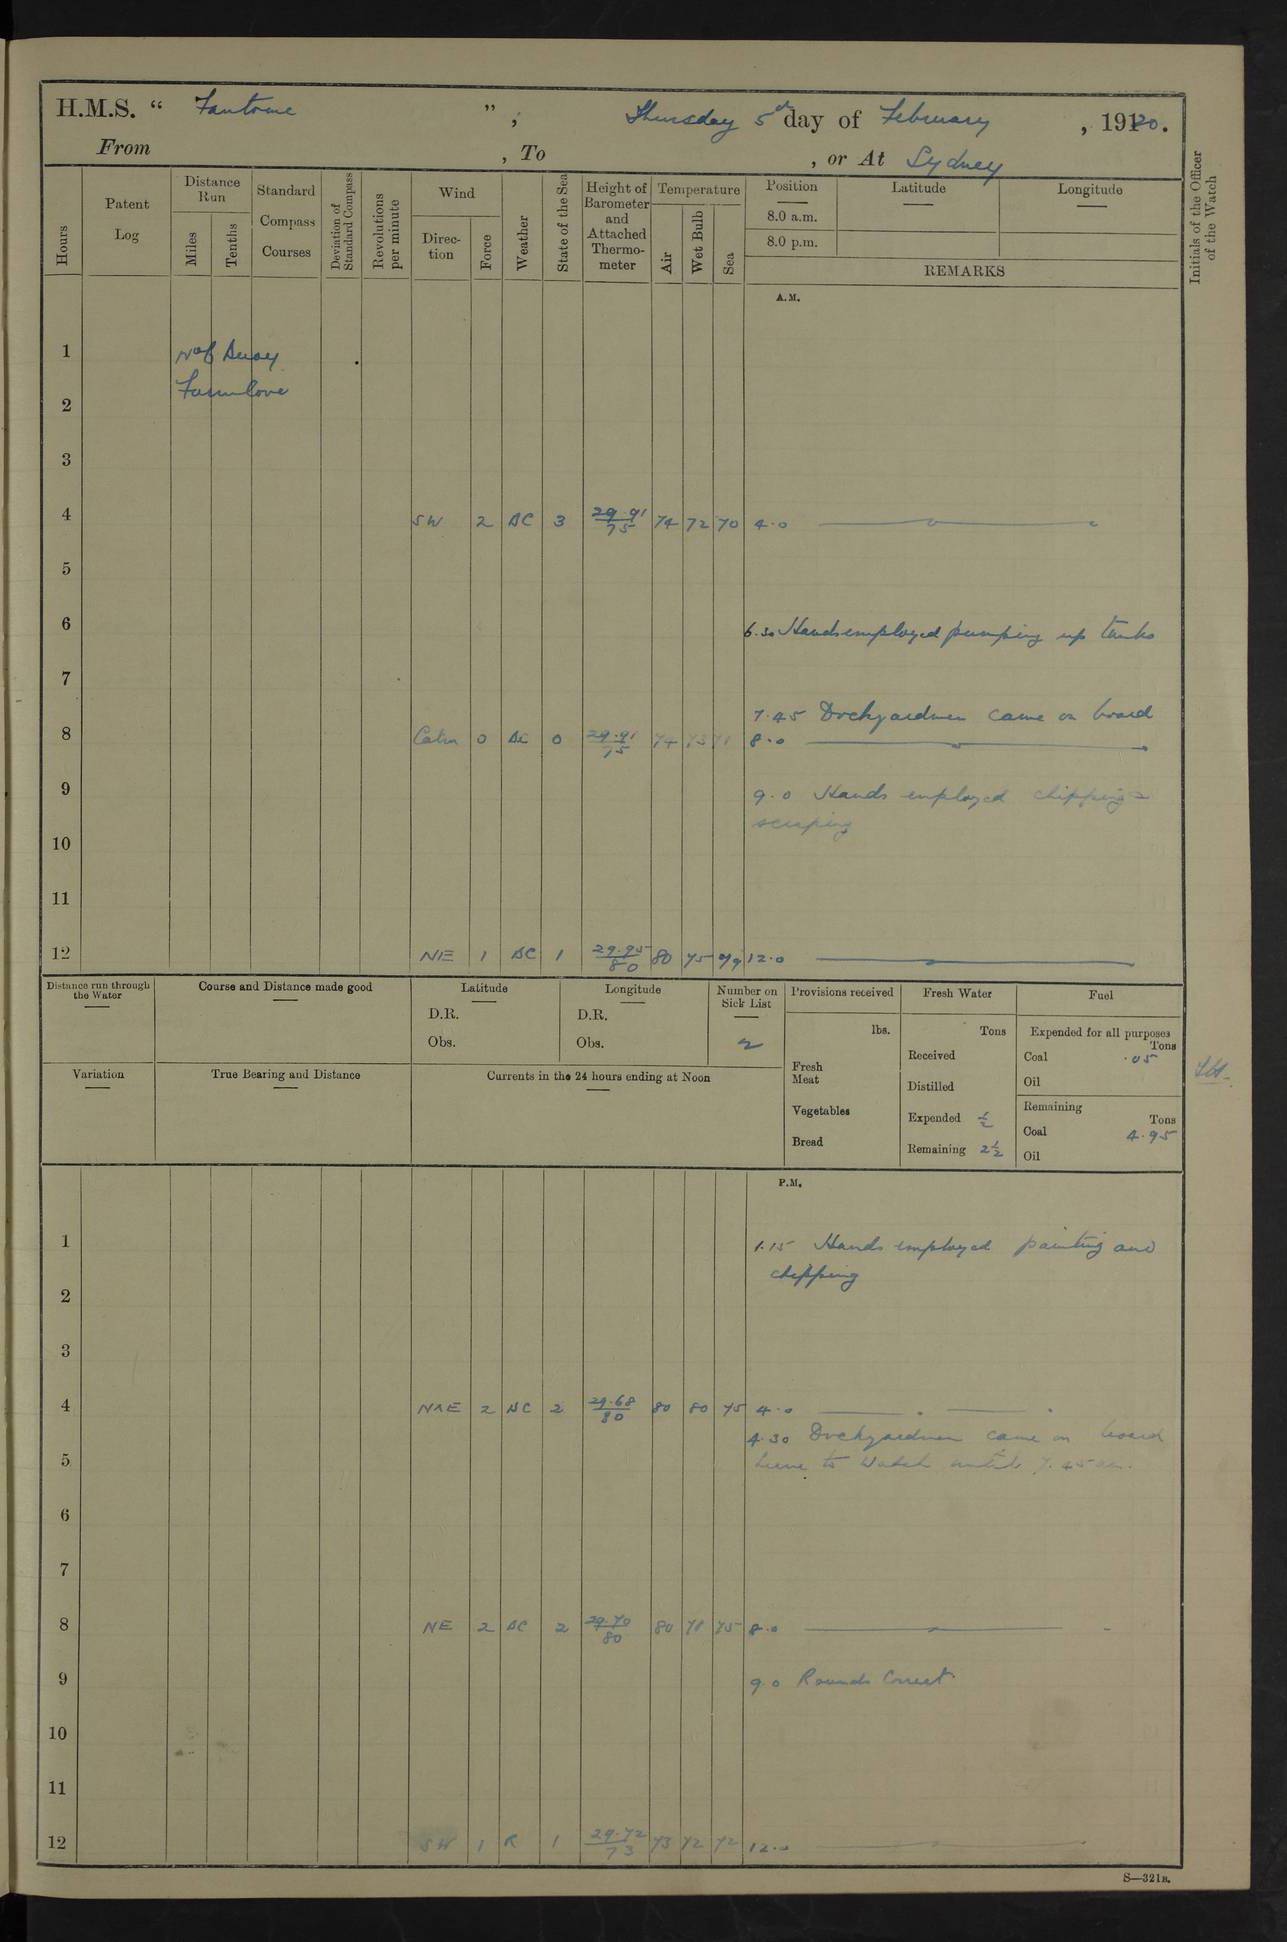 H.M.S. “ Fantome ”, Thursday 5th day of February , 1920.
From , To , or At Sydney
Hours
Patent Log
Distance Run
Miles
Tenths
Standard Compass Courses
Deviation of Standard Compass
Revolutions per minute
Wind
Direction
Force
Weather
State of the Sea
Height of Barometer and Attached Thermometer
Temperature
Air
Wet Bulb
Sea
Position
8.0 a.m.
8.0 p.m.
Latitude
Longitude
REMARKS
Initials of the Officer of the Watch
A.M.
1 Buoy
2 Farmcove
3
4 SW 2 BC 3 29.91/75 74 72 70 4.0
5
6 6.30 Hands employed pumping up tanks
7
7.45 Dockyardmen came on board
8 Calm 0 BC 0 29.91/75 74 73 71 8.0
9 9.0 Hands employed chipping &
scraping
10
11
12 NE 1 BC 1 29.95/80 80 75 79 12.0
Distance run through the Water
Course and Distance made good
Latitude
D.R.
Obs.
Longitude
D.R.
Obs.
Number on Sick List
2
Provisions received
lbs.
Fresh Meat
Vegetables
Bread
Fresh Water
Tons
Received
Distilled
Expended ½
Remaining 2½
Fuel
Expended for all purposes
Tons
Coal .05
Oil
Remaining
Tons
Coal 4.95
Oil
Variation
True Bearing and Distance
Currents in the 24 hours ending at Noon
P.M.
1 1.15 Hands employed painting and
chipping
2
3
4 NNE 2 BC 2 29.68/80 80 80 75 4.0
4.30 Dockyardmen came on board
5 to Watch until 7.45 am.
6
7
8 NE 2 BC 2 29.70/80 80 78 75 8.0
9 9.0 Rounds Correct
10
11
12 SW 1 R 1 29.72/73 73 72 72 12.0
S—321B.